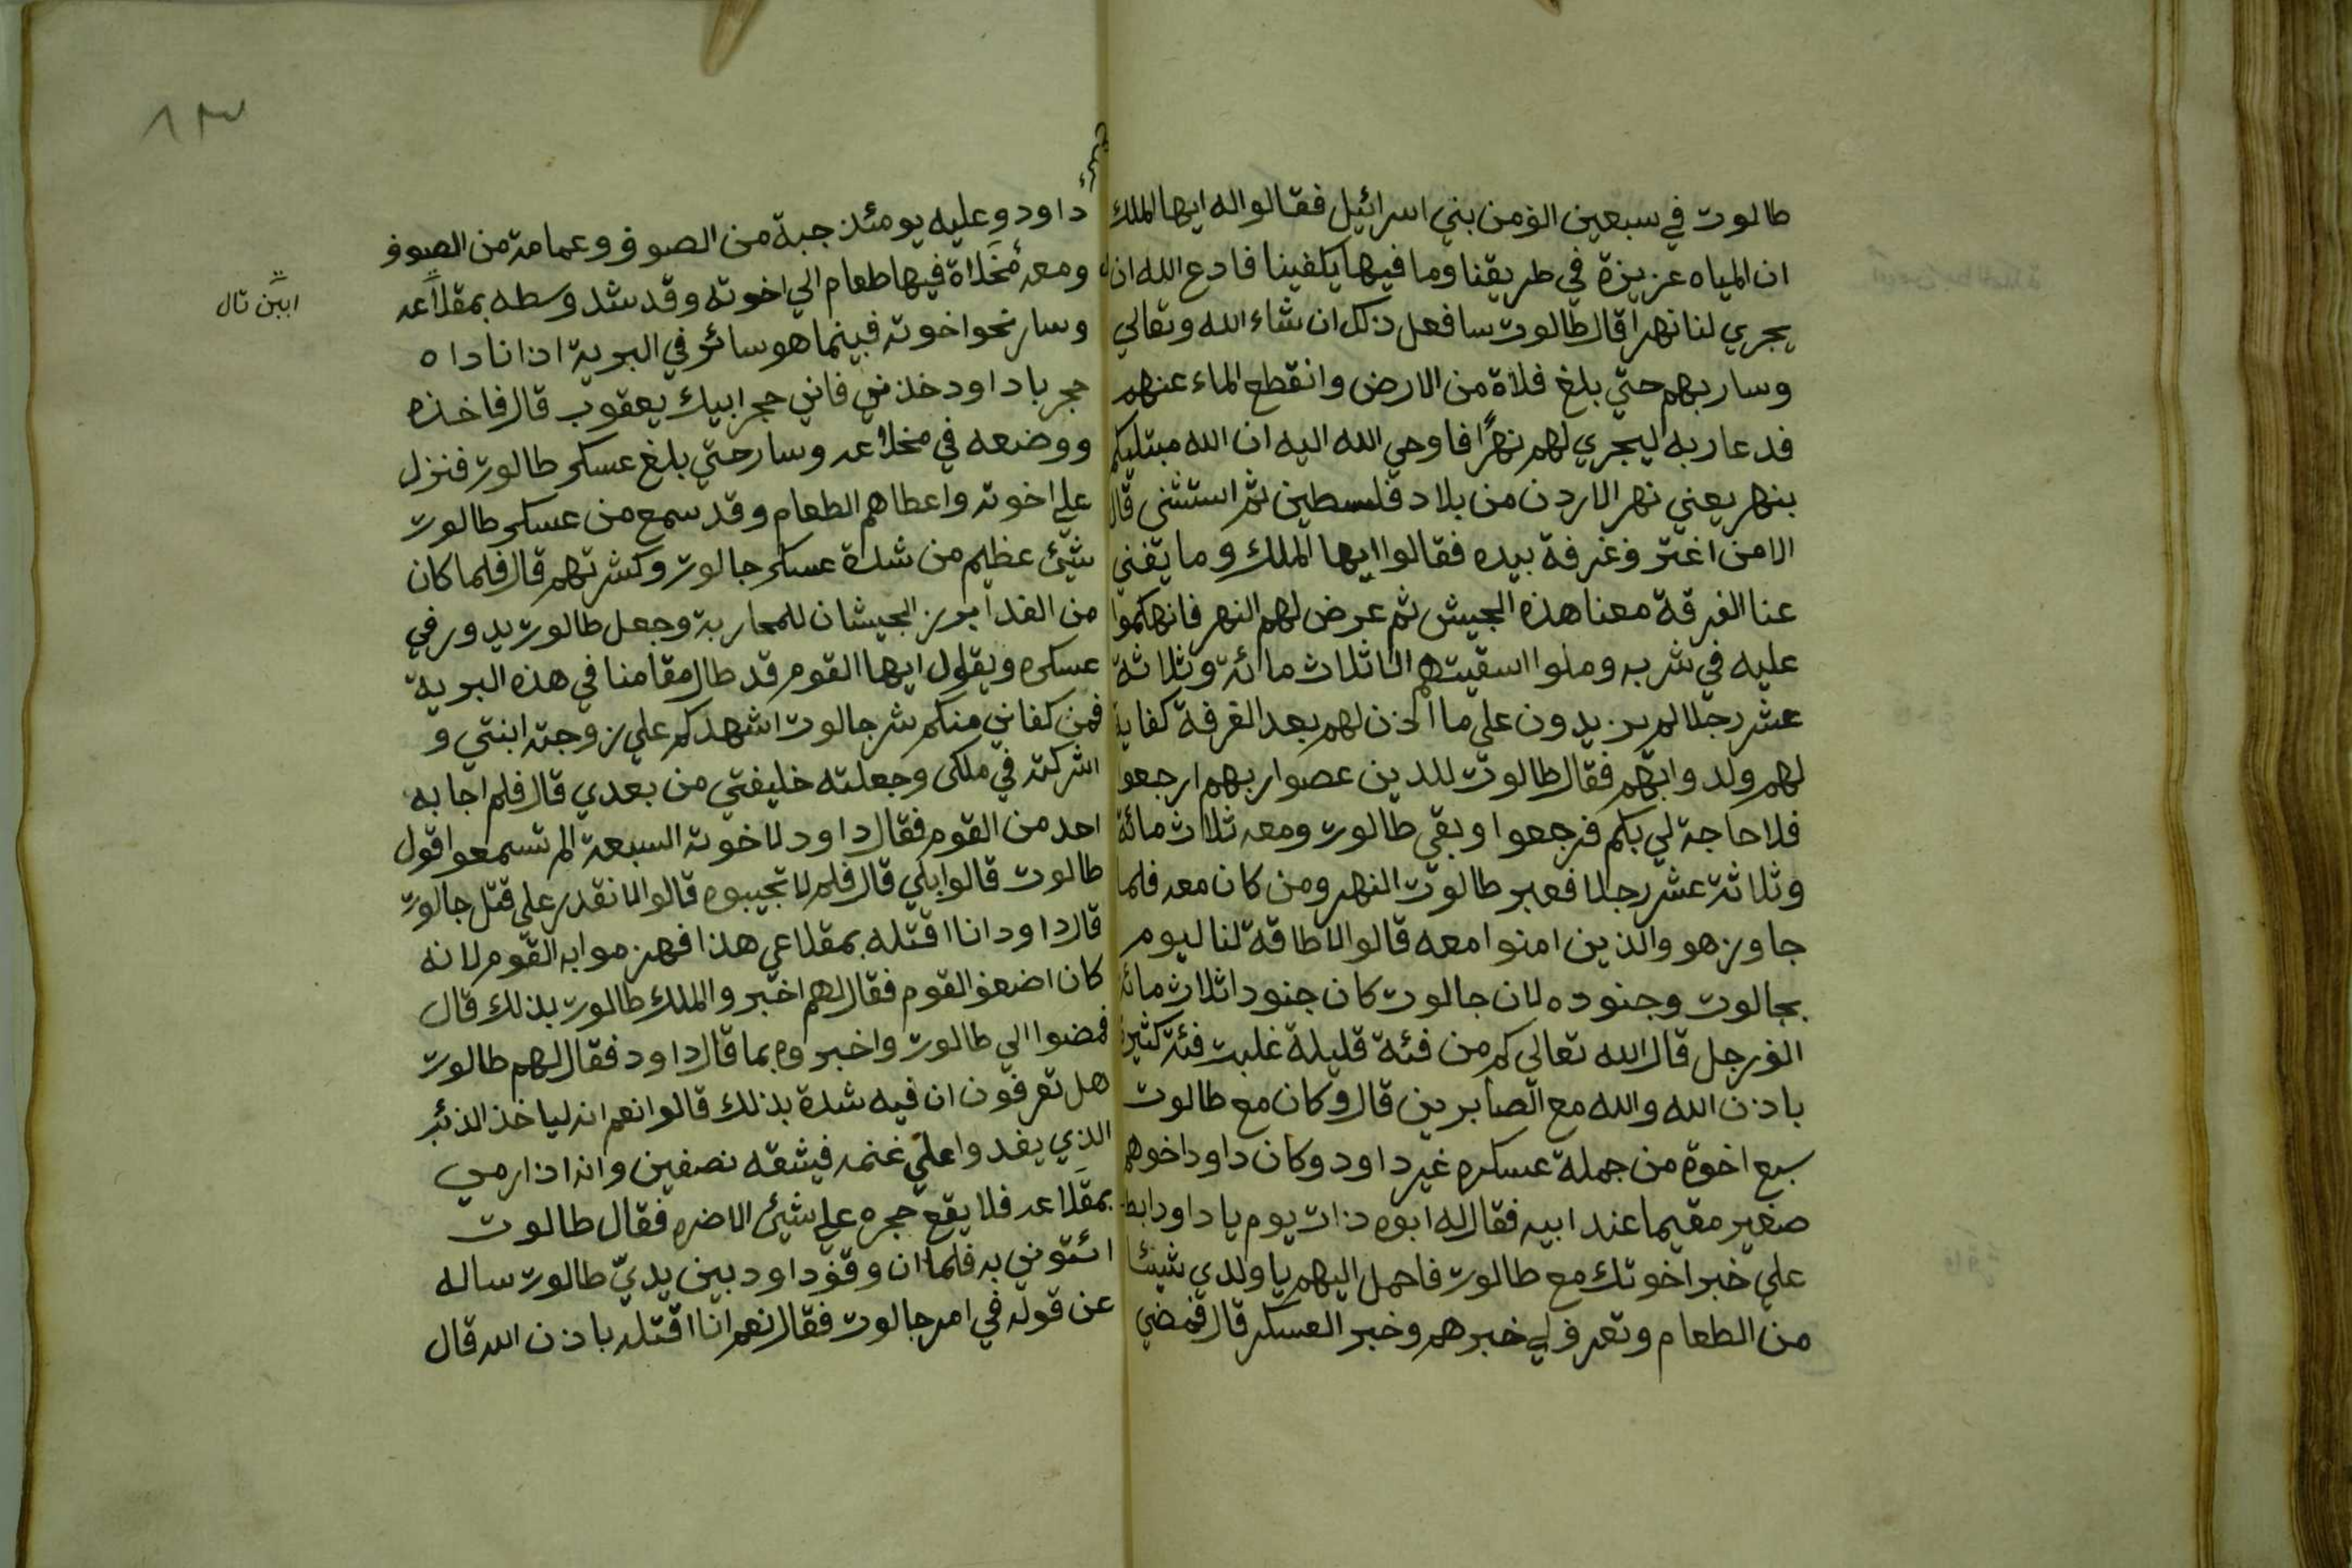 طالوت في سبعين الف من بني اسرائيل فقالوا له ايها الملك
ان المياه عزيزة في طريقنا وما فيها يكفينا فادع الله ان
يجري لنا نهرا قال طالوت سافعل ذلك ان شاء الله وتعالي
وسار بهم حتي بلغ فلاة من الارض وانقطع الماء عنهم
فدعا ربه ليجري لهم نهرًا فاوحي الله اليه ان الله مبتليكم
بنهر يعني نهر الاردن من بلاد فلسطين ثم استثنى قال
الا من اغترف غرفة بيده فقالوا ايها الملك وما يغني
عنا الغرفة معنا هذه الجيش ثم عرض لهم النهر فانهكموا
عليه في شربه وملوا اسقيتهم الا ثلاث مائة وثلاثة
عشر رجلا لم يزيدون على ما اذن لهم بعد الغرفة كفاية
لهم ولدوابهم فقال طالوت للذين عصوا ربهم ارجعوا
فلا حاجة لي بكم فرجعوا وبقي طالوت ومعه ثلاث مائة
وثلاثة عشر رجلا فعبر طالوت النهر ومن كان معه فلما
جاوزه هو والذين امنوا معه قالوا لا طاقة لنا ليوم
بجالوت وجنوده لان جالوت كان جنوده ثلاث مائة
الف رجل قال الله تعالي كم من فئة قليلة غلبت فئة كثيرة
باذن الله والله مع الصابرين قال وكان مع طالوت
سبع اخوة من جملة عسكره غير داود وكان داود اخوهم
صغير مقيما عند ابيه فقال له ابوه ذات يوم يا داود ابط
علي خبر اخوتك مع طالوت فاحمل اليهم يا ولدي شيئا
من الطعام وتعرف لي خبرهم وخبر العسكر قال فمضي
٨٣
داود وعليه يومئذ جبة من الصوف وعمامة من الصوف
ومعه مخلاة فيها طعام الي اخوته وقد شد وسطه بمقلاعه
وسار نحو اخوته فبينما هو سائر في البرية اذا ناداه
حجر يا داود خذني فاني حجر ابيك يعقوب قال فاخذه
ووضعه في مخلاعه وسار حتي بلغ عسكر طالوت فنزل
علي اخوته واعطاهم الطعام وقد سمع من عسكر طالوت
شيئ عظيم من شدة عسكر جالوت وكثرتهم قال فلما كان
من الغد ابرز الجيشان للمحاربة وجعل طالوت يدور في
عسكره ويقول ايها القوم قد طال مقامنا في هذه البرية
فمن كفاني منكم شر جالوت اشهدكم علي زوجته ابنتي و
اشركته في ملكي وجعلته خليفتي من بعدي قال فلم اجابه
احد من القوم فقال داود لاخوته السبعة الم تسمعوا قول
طالوت قالوا بلي قال فلم لا تجيبوه قالوا لا نقدر علي قتل جالوت
قال داود انا اقتله بمقلاعي هذا فهزموا به القوم لانه
كان اضعف القوم فقال لهم اخبروا الملك طالوت بذلك قال
فمضوا الي طالوت واخبروه بما قال داود فقال لهم طالوت
هل تعرفون ان فيه شدة بذلك قالوا نعم انه لياخذ الذئب
الذي يغدوا علي غنمه فيشقه نصفين وانه اذا رمي
بمقلاعه فلا يقع حجره علي شيئ الا ضره فقال طالوت
ائتوني به فلما ان وقف داود بين يديّ طالوت ساله
عن قوله في امر جالوت فقال نعم انا اقتله باذن الله قال